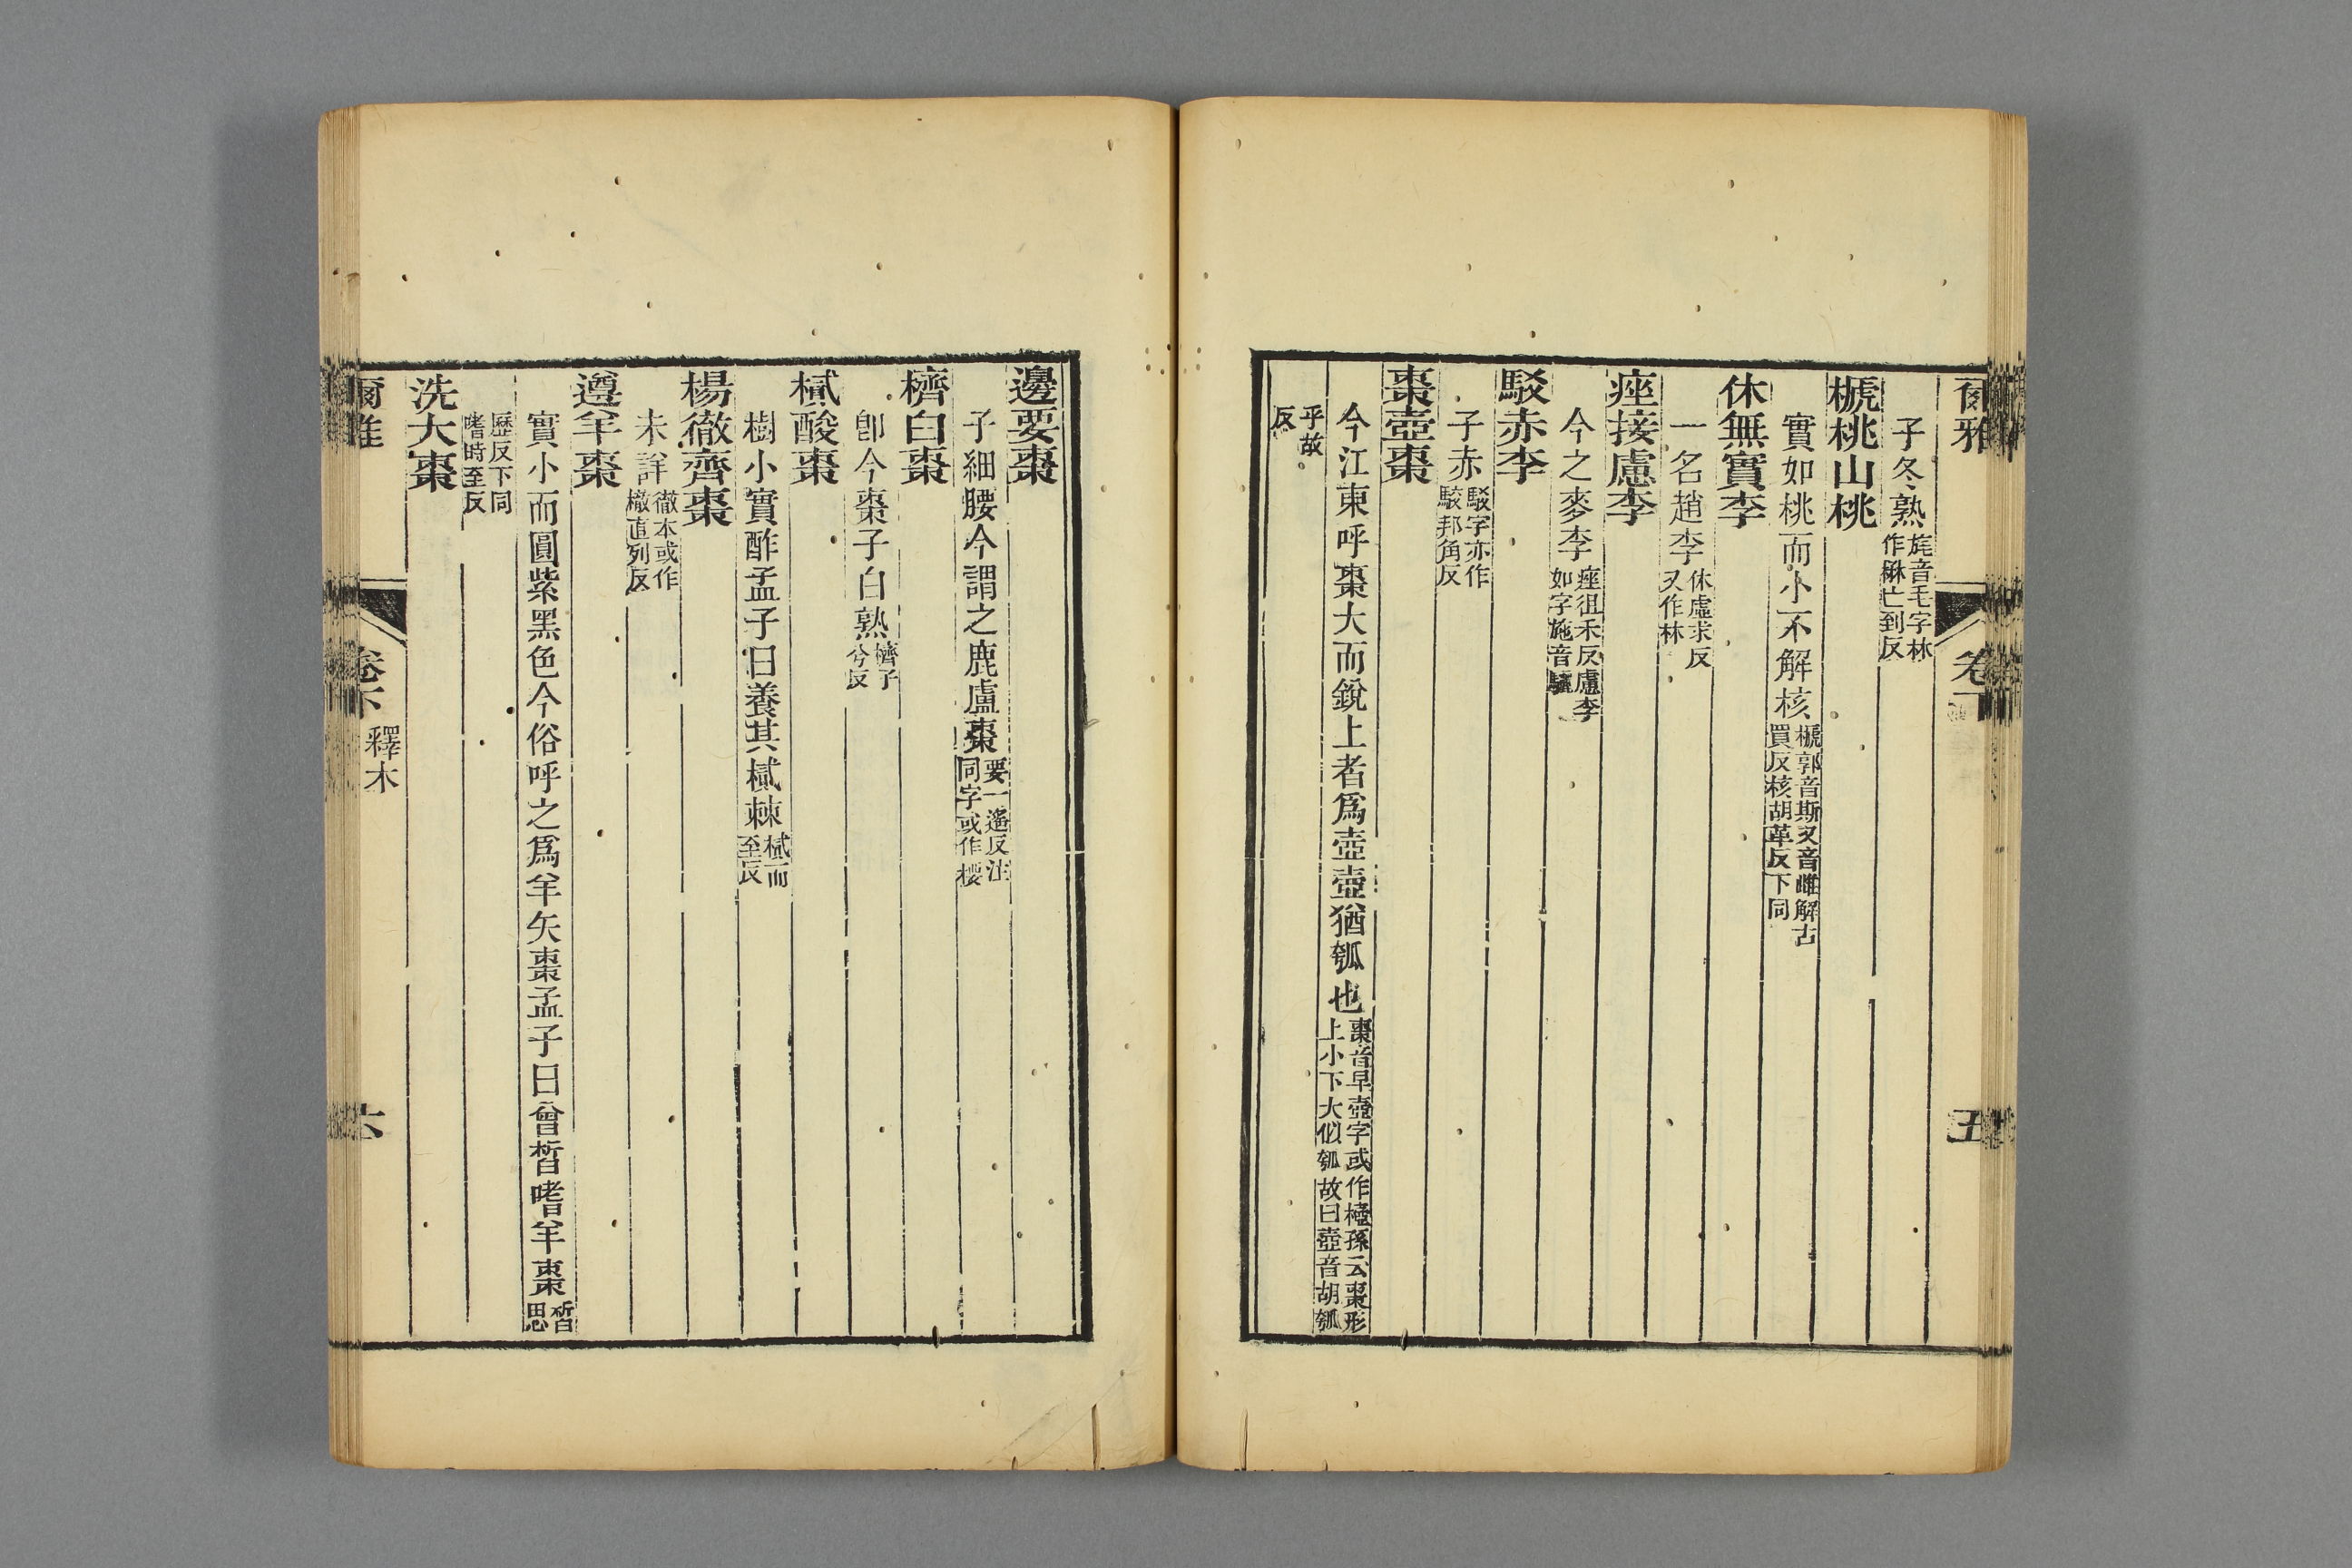 爾雅 卷下 五
子冬熟旄音毛字林作楙亡到反
榹桃山桃
實如桃而小不解核榹郭音斯又音雌解古買反核胡革反下同
休無實李
一名趙李休虛求反又作㭋
痤接慮李
今之麥李痤徂禾反慮李如字施音驢
駁赤李
子赤駁字亦作駮邦角反
棗壺棗
今江東呼棗大而銳上者爲壺壺猶瓠也棗音早壺字或作㯛孫云棗形上小下大似瓠故曰壺音胡瓠
乎故反
邊要棗
子細腰今謂之鹿盧棗要一遙反注同字或作㮌
櫅白棗
卽今棗子白熟櫅子兮反
樲酸棗
樹小實酢孟子曰養其樲棘樲而至反
楊徹齊棗
未詳徹本或作㯙直列反
遵羊棗
實小而圓紫黑色今俗呼之爲羊矢棗孟子曰曾晳嗜羊棗晳思
歷反下同嗜時至反
洗大棗
爾雅 卷下 釋木 六